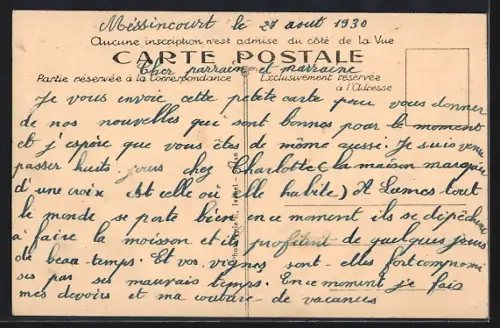 Méssincourt le 27 août 1930
Aucune inscription n'est admise du côté de la Vue
CARTE POSTALE
Cher parrain et marraine
Partie réservée à la correspondance Exclusivement réservée
à l'Adresse
Je vous envoie cette petite carte pour vous donner
de nos nouvelles qui sont bonnes pour le moment
et j'espère que vous êtes de même aussi. Je suis venue
passer huits jours chez Charlotte (la maison marquée
d'une croix est celle où elle habite) A Lames tout
le monde se porte bien en ce moment ils se dépêchent
à faire la moisson et ils profitent de quelques jours
de beau temps. Et vos vignes sont-elles fort compromi
ses par ses mauvais temps. En ce moment je fais
mes devoirs et ma couture de vacances